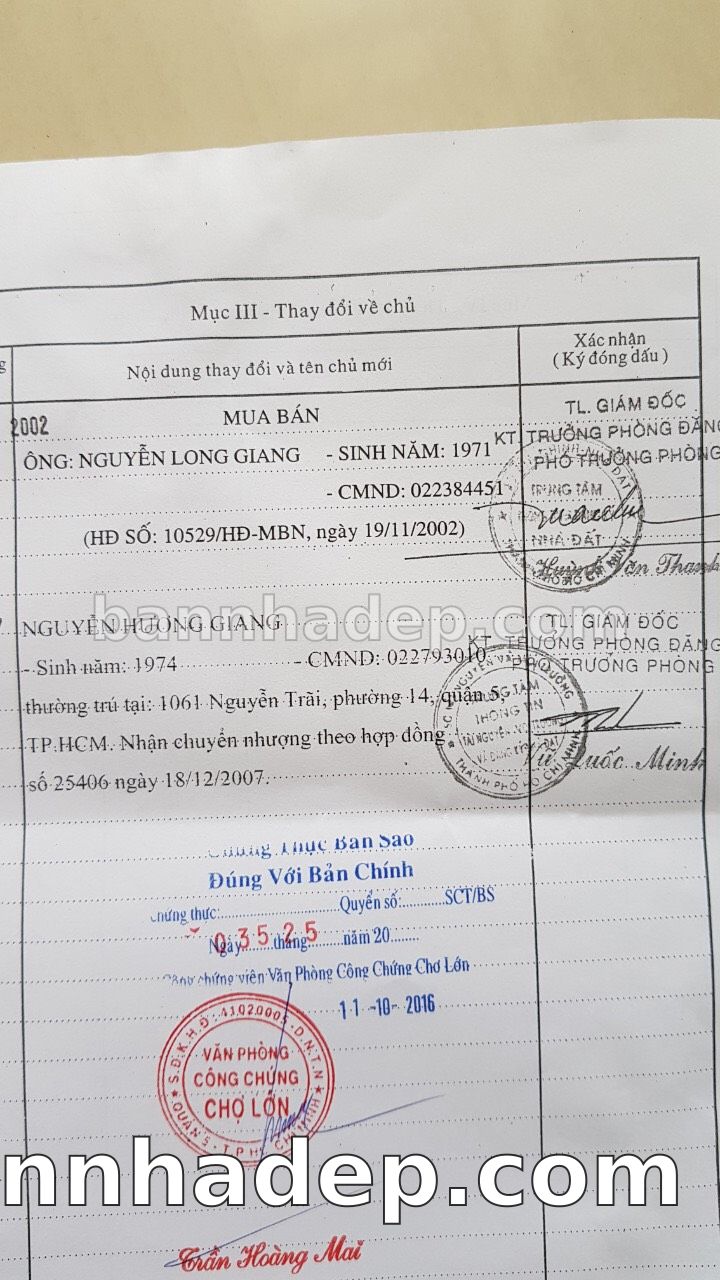 Mục III - Thay đổi về chủ
Nội dung thay đổi và tên chủ mới
Xác nhận
( Ký đóng dấu )
2002
MUA BÁN
TL. GIÁM ĐỐC
KT. TRƯỞNG PHÒNG ĐĂNG
PHÓ TRƯỞNG PHÒNG
ÔNG: NGUYỄN LONG GIANG - SINH NĂM: 1971
- CMND: 022384451
TRUNG TÂM
NHÀ ĐẤT
(HĐ SỐ: 10529/HĐ-MBN, ngày 19/11/2002)
Văn Thanh
bannhadep.com
NGUYỄN HƯƠNG GIANG
TL. GIÁM ĐỐC
KT. TRƯỞNG PHÒNG ĐĂNG
PHÓ TRƯỞNG PHÒNG
- Sinh năm: 1974 - CMND: 022793010
thường trú tại: 1061 Nguyễn Trãi, phường 14, quận 5,
TP.HCM. Nhận chuyển nhượng theo hợp đồng
số 25406 ngày 18/12/2007.
TRUNG TÂM
THÔNG TIN
THÀNH PHỐ HỒ CHÍ MINH
Quốc Minh
Chứng Thực Bản Sao
Đúng Với Bản Chính
chứng thực: Quyển số: SCT/BS
03525
Ngày tháng năm 20
Công chứng viên Văn Phòng Công Chứng Chợ Lớn
11 -10- 2016
VĂN PHÒNG
CÔNG CHỨNG
CHỢ LỚN
QUẬN 5 - T.P HỒ CHÍ MINH
nnhadep.com
Trần Hoàng Mai